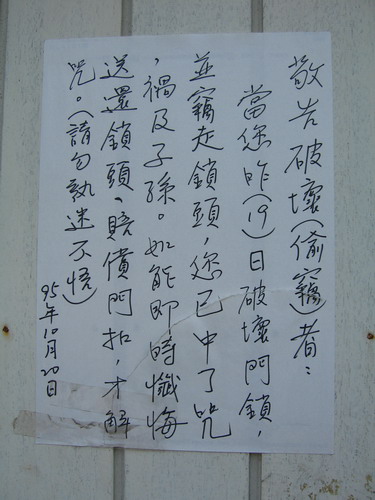 敬告破壞(偷竊)者：
當您昨(19)日破壞門鎖，
並竊走鎖頭，您已中了咒
，禍及子孫。如能即時懺悔
送還鎖頭、賠償門扣，才解
咒。(請勿執迷不悟)
95年10月20日